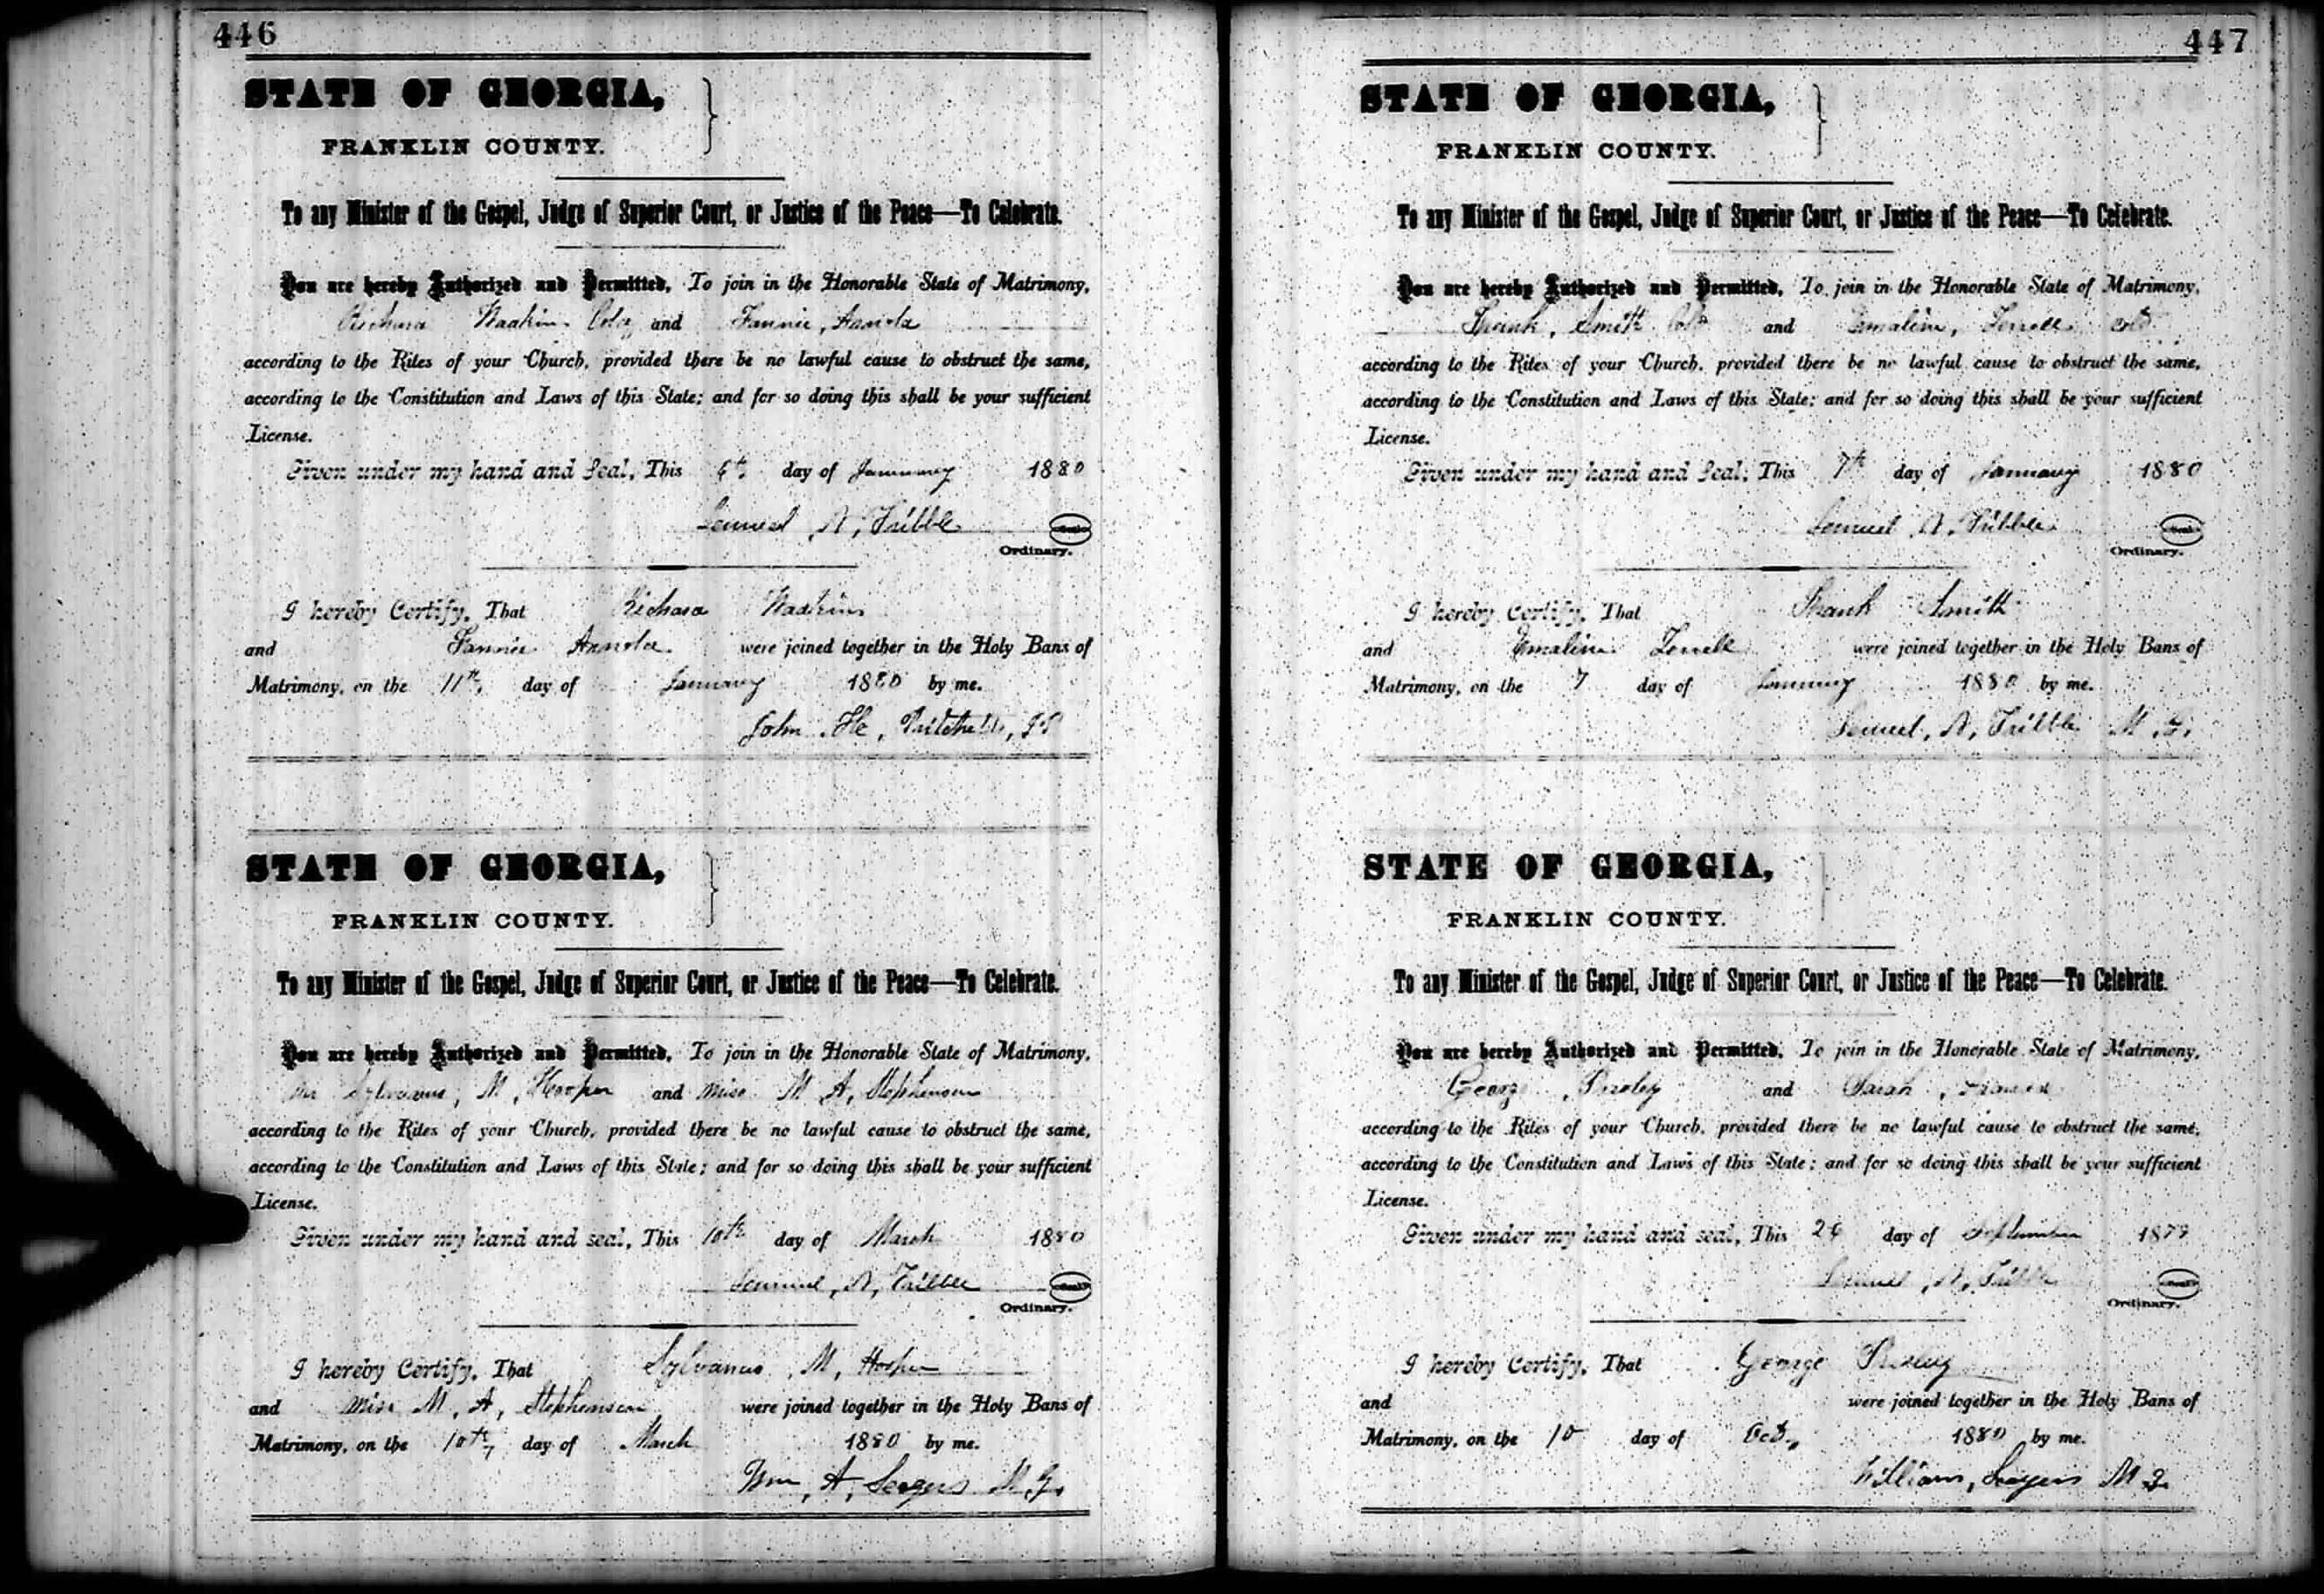 446
STATE OF GEORGIA,
FRANKLIN COUNTY.
To any Minister of the Gospel, Judge of Superior Court, or Justice of the Peace—To Celebrate.
You are hereby Authorized and Permitted, To join in the Honorable State of Matrimony,
Richard and Fannie, Arnold
according to the Rites of your Church, provided there be no lawful cause to obstruct the same,
according to the Constitution and Laws of this State; and for so doing this shall be your sufficient
License.
Given under my hand and Seal, This day of January 1880
Lemuel N, Tribble
Ordinary.
I hereby Certify, That Richard
and Fannie Arnold were joined together in the Holy Bans of
Matrimony, on the 11th, day of January 1880 by me.
John
STATE OF GEORGIA,
FRANKLIN COUNTY.
To any Minister of the Gospel, Judge of Superior Court, or Justice of the Peace—To Celebrate.
You are hereby Authorized and Permitted, To join in the Honorable State of Matrimony,
Mr Sylvanus, M, Hooper and Miss M A, Stephenson
according to the Rites of your Church, provided there be no lawful cause to obstruct the same,
according to the Constitution and Laws of this State; and for so doing this shall be your sufficient
License.
Given under my hand and seal, This 10th day of March 1880
Lemuel, N, Tribble
Ordinary.
I hereby Certify, That Sylvanus, M, Hooper
and Miss M, A, Stephenson were joined together in the Holy Bans of
Matrimony, on the 10th, day of March 1880 by me.
Wm, A, M, G,
447
STATE OF GEORGIA,
FRANKLIN COUNTY.
To any Minister of the Gospel, Judge of Superior Court, or Justice of the Peace—To Celebrate.
You are hereby Authorized and Permitted, To join in the Honorable State of Matrimony,
Frank, Smith Cold and Emaline, Terrell cold
according to the Rites of your Church, provided there be no lawful cause to obstruct the same,
according to the Constitution and Laws of this State; and for so doing this shall be your sufficient
License.
Given under my hand and Seal, This 7th day of January 1880
Lemuel N, Tribble
Ordinary.
I hereby Certify, That Frank Smith
and Emaline Terrell were joined together in the Holy Bans of
Matrimony, on the 7 day of January 1880 by me.
Lemuel, N, Tribble M, G,
STATE OF GEORGIA,
FRANKLIN COUNTY.
To any Minister of the Gospel, Judge of Superior Court, or Justice of the Peace—To Celebrate.
You are hereby Authorized and Permitted, To join in the Honorable State of Matrimony,
George and Sarah,
according to the Rites of your Church, provided there be no lawful cause to obstruct the same,
according to the Constitution and Laws of this State; and for so doing this shall be your sufficient
License.
Given under my hand and seal, This day of September 1879
Lemuel, N, Tribble
Ordinary.
I hereby Certify, That George
and were joined together in the Holy Bans of
Matrimony, on the 10 day of Oct, 1880 by me.
William, M G.